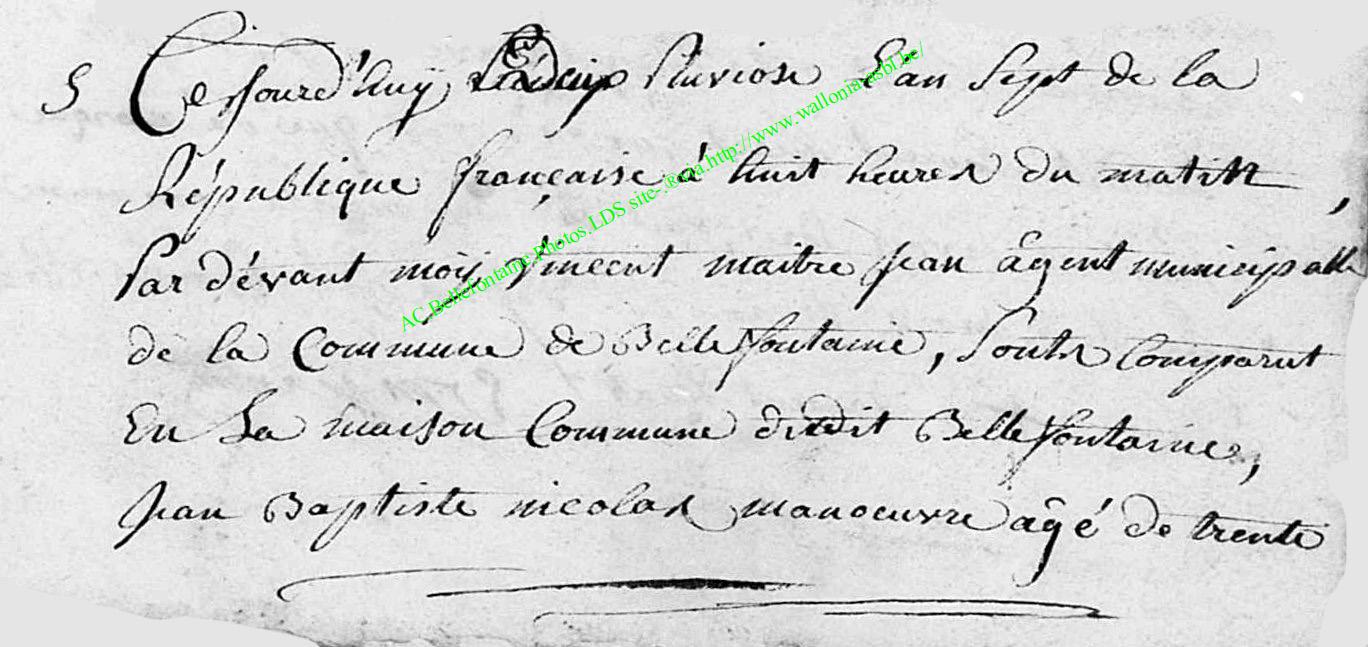 5 Cejourd'huy Pluviose L'an Sept de la
République française à huit heures du matin,
Par dévant moy vincent maitre jean âgent municipalle
de la Commune de Bellefontaine, sont comparut
En La maison Commune dudit Bellefontaine,
jean Baptiste nicolas manoeuvre âgé de trente
AC.Bellefontaine.Photos.LDS site-®via.http://www.wallonia-asbl.be/